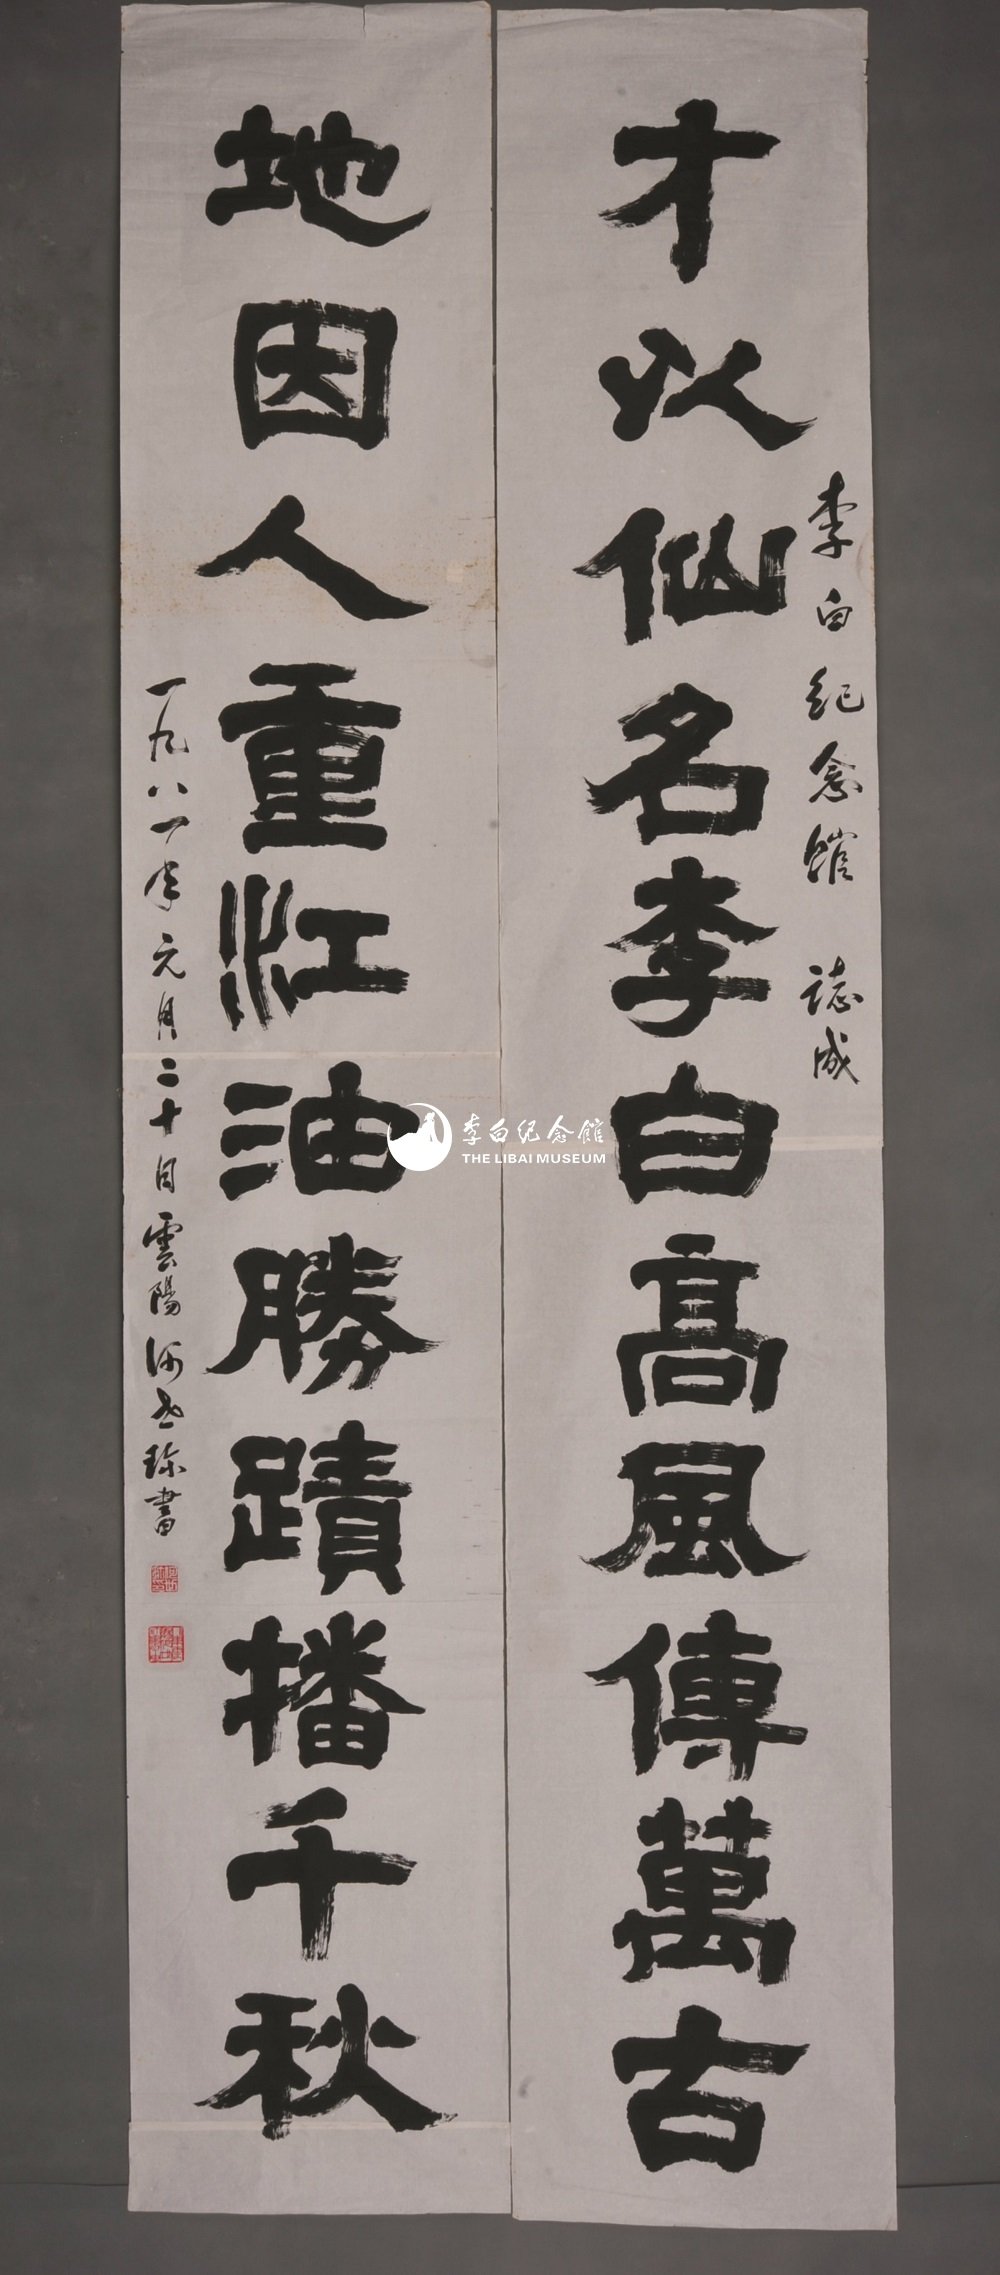 李白紀念館 誌成
才以仙名李白高風傳萬古
地因人重江油勝蹟播千秋
一九八一年元月二十日雲陽何世珍書
李白纪念馆
THE LIBAI MUSEUM